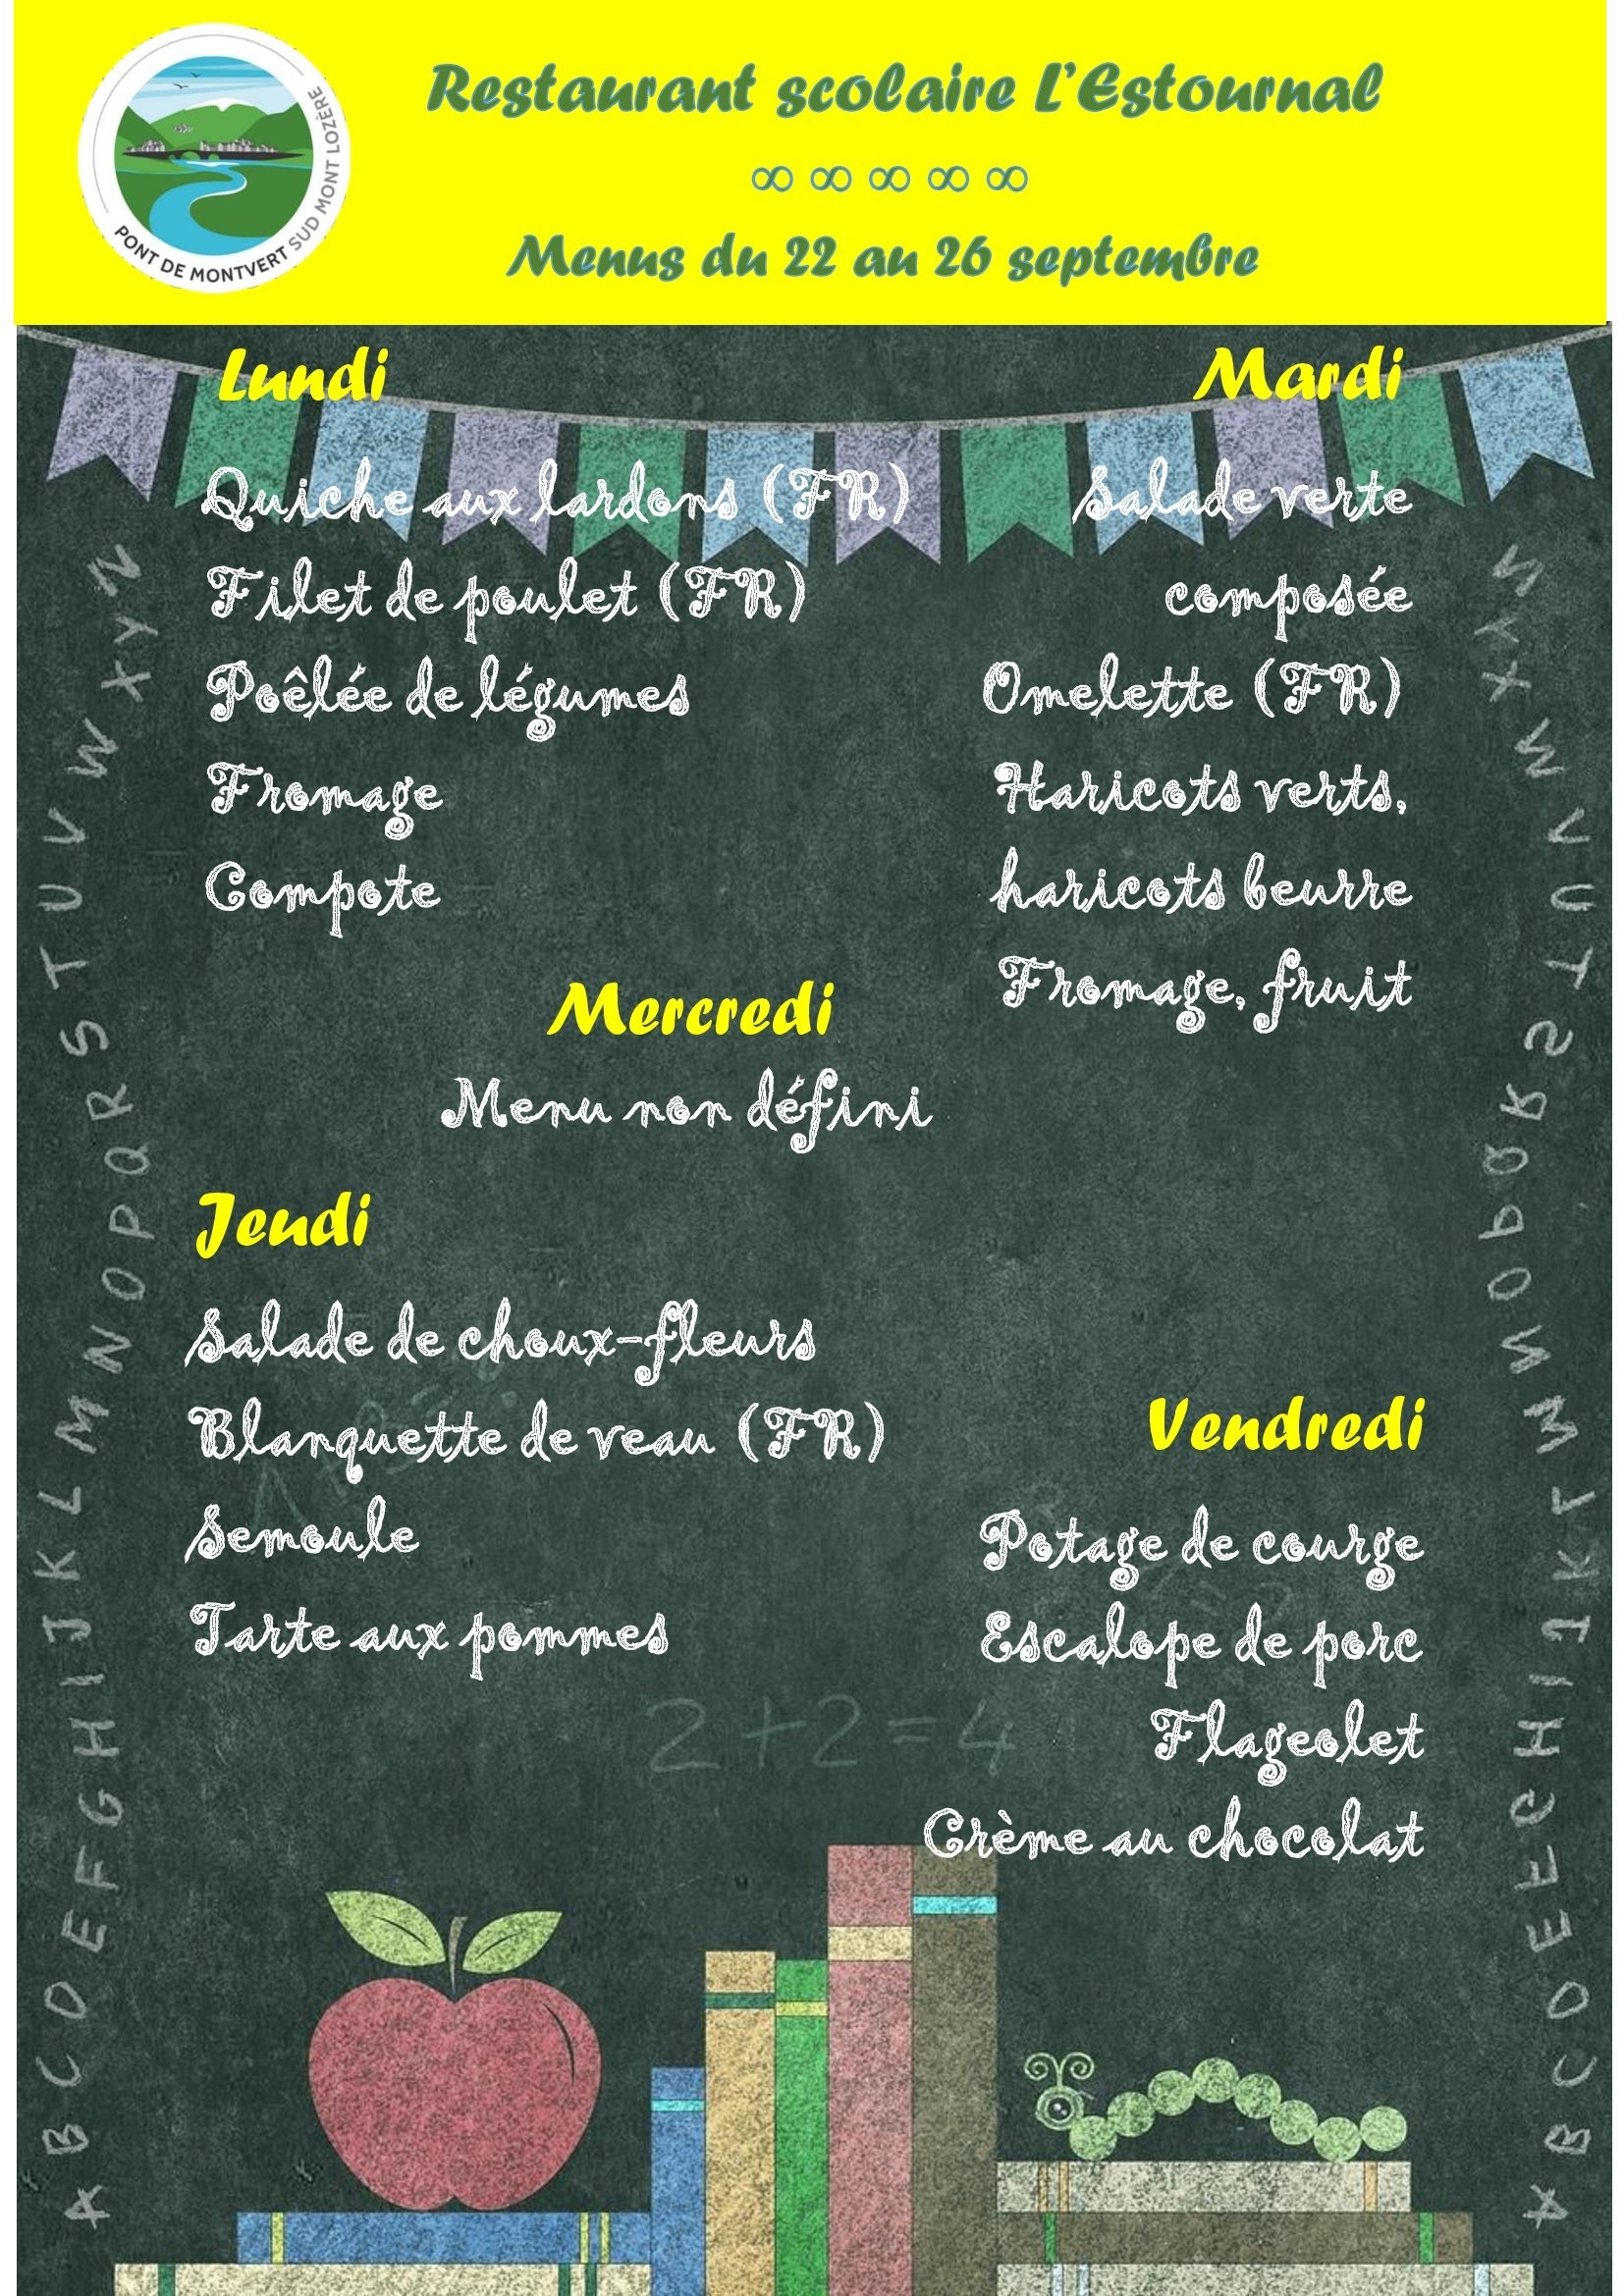 PONT DE MONTVERT SUD MONT LOZÈRE
Restaurant scolaire L'Estournal
∞ ∞ ∞ ∞ ∞
Menus du 22 au 26 septembre
Lundi
Quiche aux lardons (FR)
Filet de poulet (FR)
Poêlée de légumes
Fromage
Compote
Mardi
Salade verte
composée
Omelette (FR)
Haricots verts,
haricots beurre
Fromage, fruit
Mercredi
Menu non défini
Jeudi
Salade de choux-fleurs
Blanquette de veau (FR)
Semoule
Tarte aux pommes
Vendredi
Potage de courge
Escalope de porc
Flageolet
Crème au chocolat
2+2=4